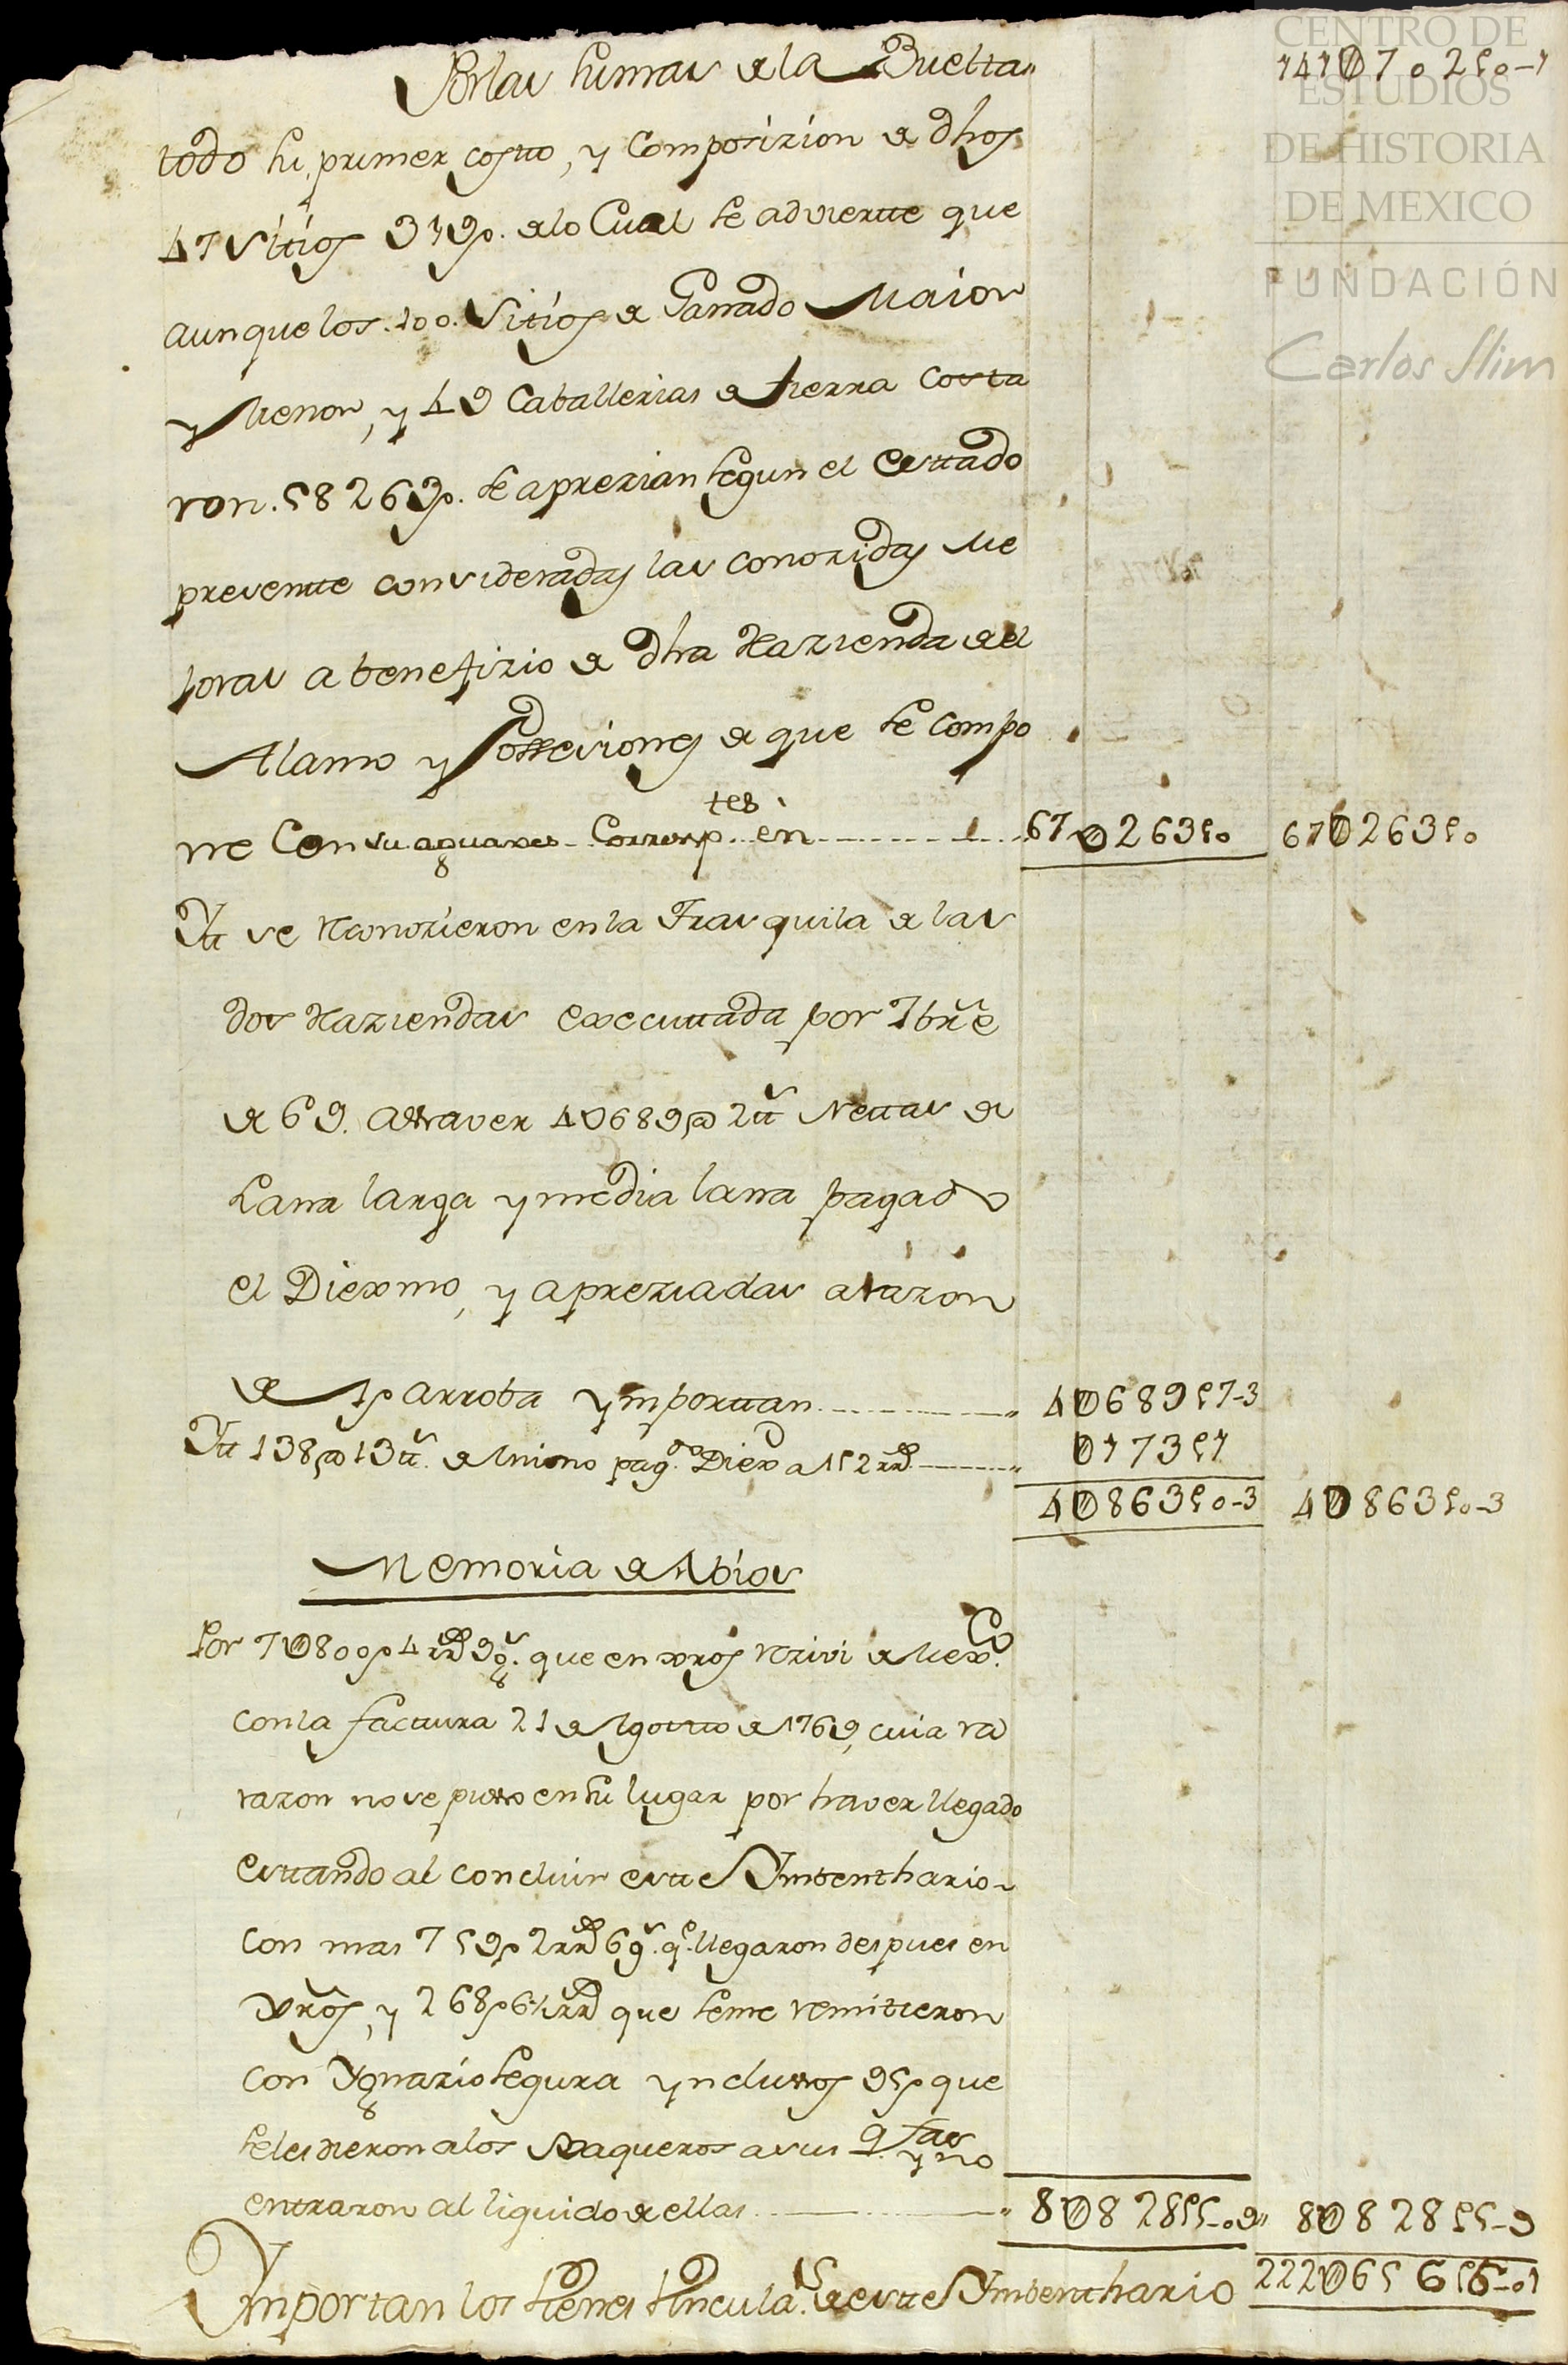 CENTRO DE
ESTUDIOS
DE HISTORIA
DE MEXICO
FUNDACIÓN
Carlos Slim
Por las sumas de la Buelta
todo su primer costto, y Composizion de dhos
47 Sitios 319p. de lo Cual se adviertte que
aunque los 100. Sitios de Ganado Maior
y Menor, y 49 Caballerias de tierra Costa
ron. 58263p. se aprezian segun el estado
presentte consideradas las conozidas Me
joras a benefizio de dha Hazienda del
Alamo y Possesiones de que se compo
ne Con su aguaxes Corresp.tes en 67Ø263p0 67Ø263p0
Ytt se Rconozieron en la Trasquila de las
dos Haziendas executtada por 7bre
de 69. attraver 4Ø689@ 2tt Nettas de
Lana larga y media lana pagado
el Diexmo, y apreziadas a razon
de 1p arroba ymporttan 4Ø689p7-3
Ytt 138@13tt. de Anino pag.do Diex.o a 1p2rrs Ø173p1
4Ø863p0-3 4Ø863p0-3
Memoria de Abios
Por 7Ø800p4rrs 9g.s que en xros Rzivi de Mex.co
con la facttura 21 de Agostto de 1769, cuia ra
razon no se pusso en su lugar por haver llegado
esttando al concluir estte Ymbenthario
con mas 759p2rrs6g.s q.e llegaron despues en
xros, y 268p6½rrs que se me remitieron
con Ygnazio Segura ynclussos 95p que
se les dieron a los Vaqueros a sus q.tas y no
entraron al liquido de ellas 8Ø828p5-09 8Ø828p5-9
Ymportan los bienes bincula.s de estte Ymbenthario